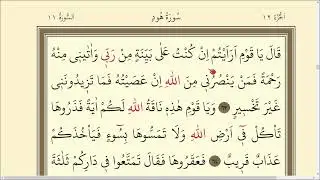 اَلْجُزْءُ ١٢
سُورَةُ هُودٍ
اَلسُّورَةُ ١١
قَالَ يَا قَوْمِ اَرَاَيْتُمْ اِنْ كُنْتُ عَلٰى بَيِّنَةٍ مِنْ رَبّٖى وَاٰتٰينٖى مِنْهُ
رَحْمَةً فَمَنْ يَنْصُرُنٖى مِنَ اللّٰهِ اِنْ عَصَيْتُهُ فَمَا تَزٖيدُونَنٖى
غَيْرَ تَخْسٖيرٍ ﴿٦٣﴾ وَيَا قَوْمِ هٰذِهٖ نَاقَةُ اللّٰهِ لَكُمْ اٰيَةً فَذَرُوهَا
تَاْكُلْ فٖى اَرْضِ اللّٰهِ وَلَا تَمَسُّوهَا بِسُٓوءٍ فَيَاْخُذَكُمْ
عَذَابٌ قَرٖيبٌ ﴿٦٤﴾ فَعَقَرُوهَا فَقَالَ تَمَتَّعُوا فٖى دَارِكُمْ ثَلٰثَةَ